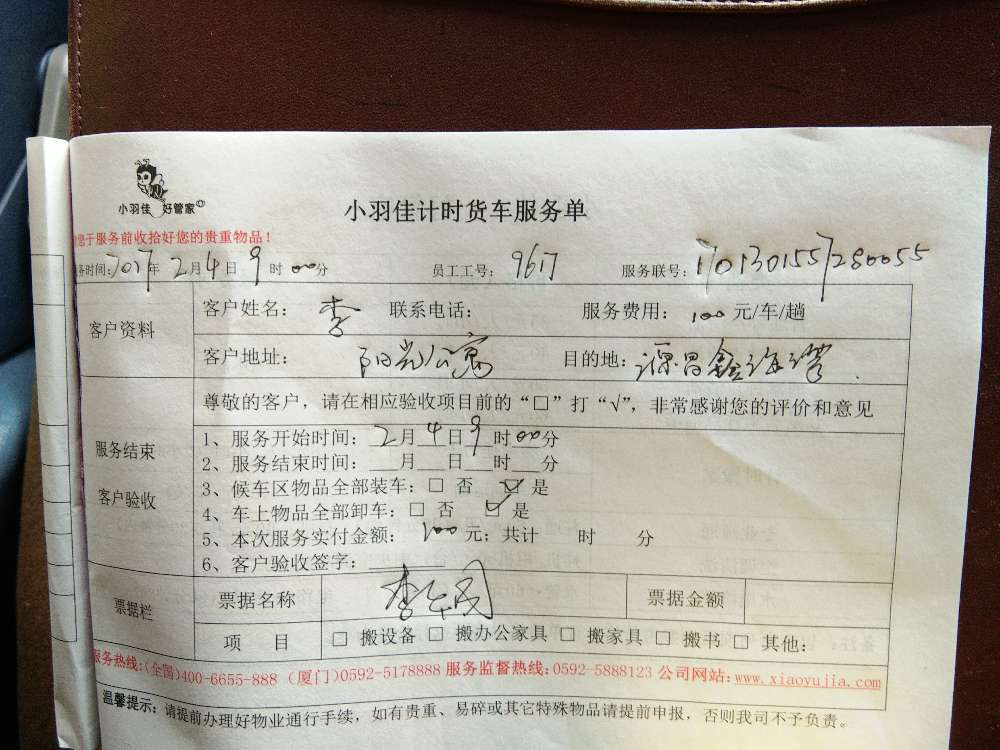 小羽佳 好管家
小羽佳计时货车服务单
您于服务前收拾好您的贵重物品！
务时间：2017年2月4日9时00分 员工工号：9617 服务联号：
客户资料 客户姓名：李 联系电话： 服务费用：100元/车/趟
客户地址：阳光公寓 目的地：源昌鑫海湾
尊敬的客户，请在相应验收项目前的“□”打“√”，非常感谢您的评价和意见
服务结束
客户验收
1、服务开始时间：2月4日9时00分
2、服务结束时间：___月___日___时___分
3、候车区物品全部装车：□ 否 ☑ 是
4、车上物品全部卸车：□ 否 ☑ 是
5、本次服务实付金额：100元；共计 时 分
6、客户验收签字：
票据栏 票据名称 票据金额
项 目 □ 搬设备 □ 搬办公家具 □ 搬家具 □ 搬书 □ 其他：
服务热线:(全国)400-6655-888 (厦门)0592-5178888 服务监督热线:0592-5888123 公司网站:www.xiaoyujia.com
温馨提示：请提前办理好物业通行手续，如有贵重、易碎或其它特殊物品请提前申报，否则我司不予负责。